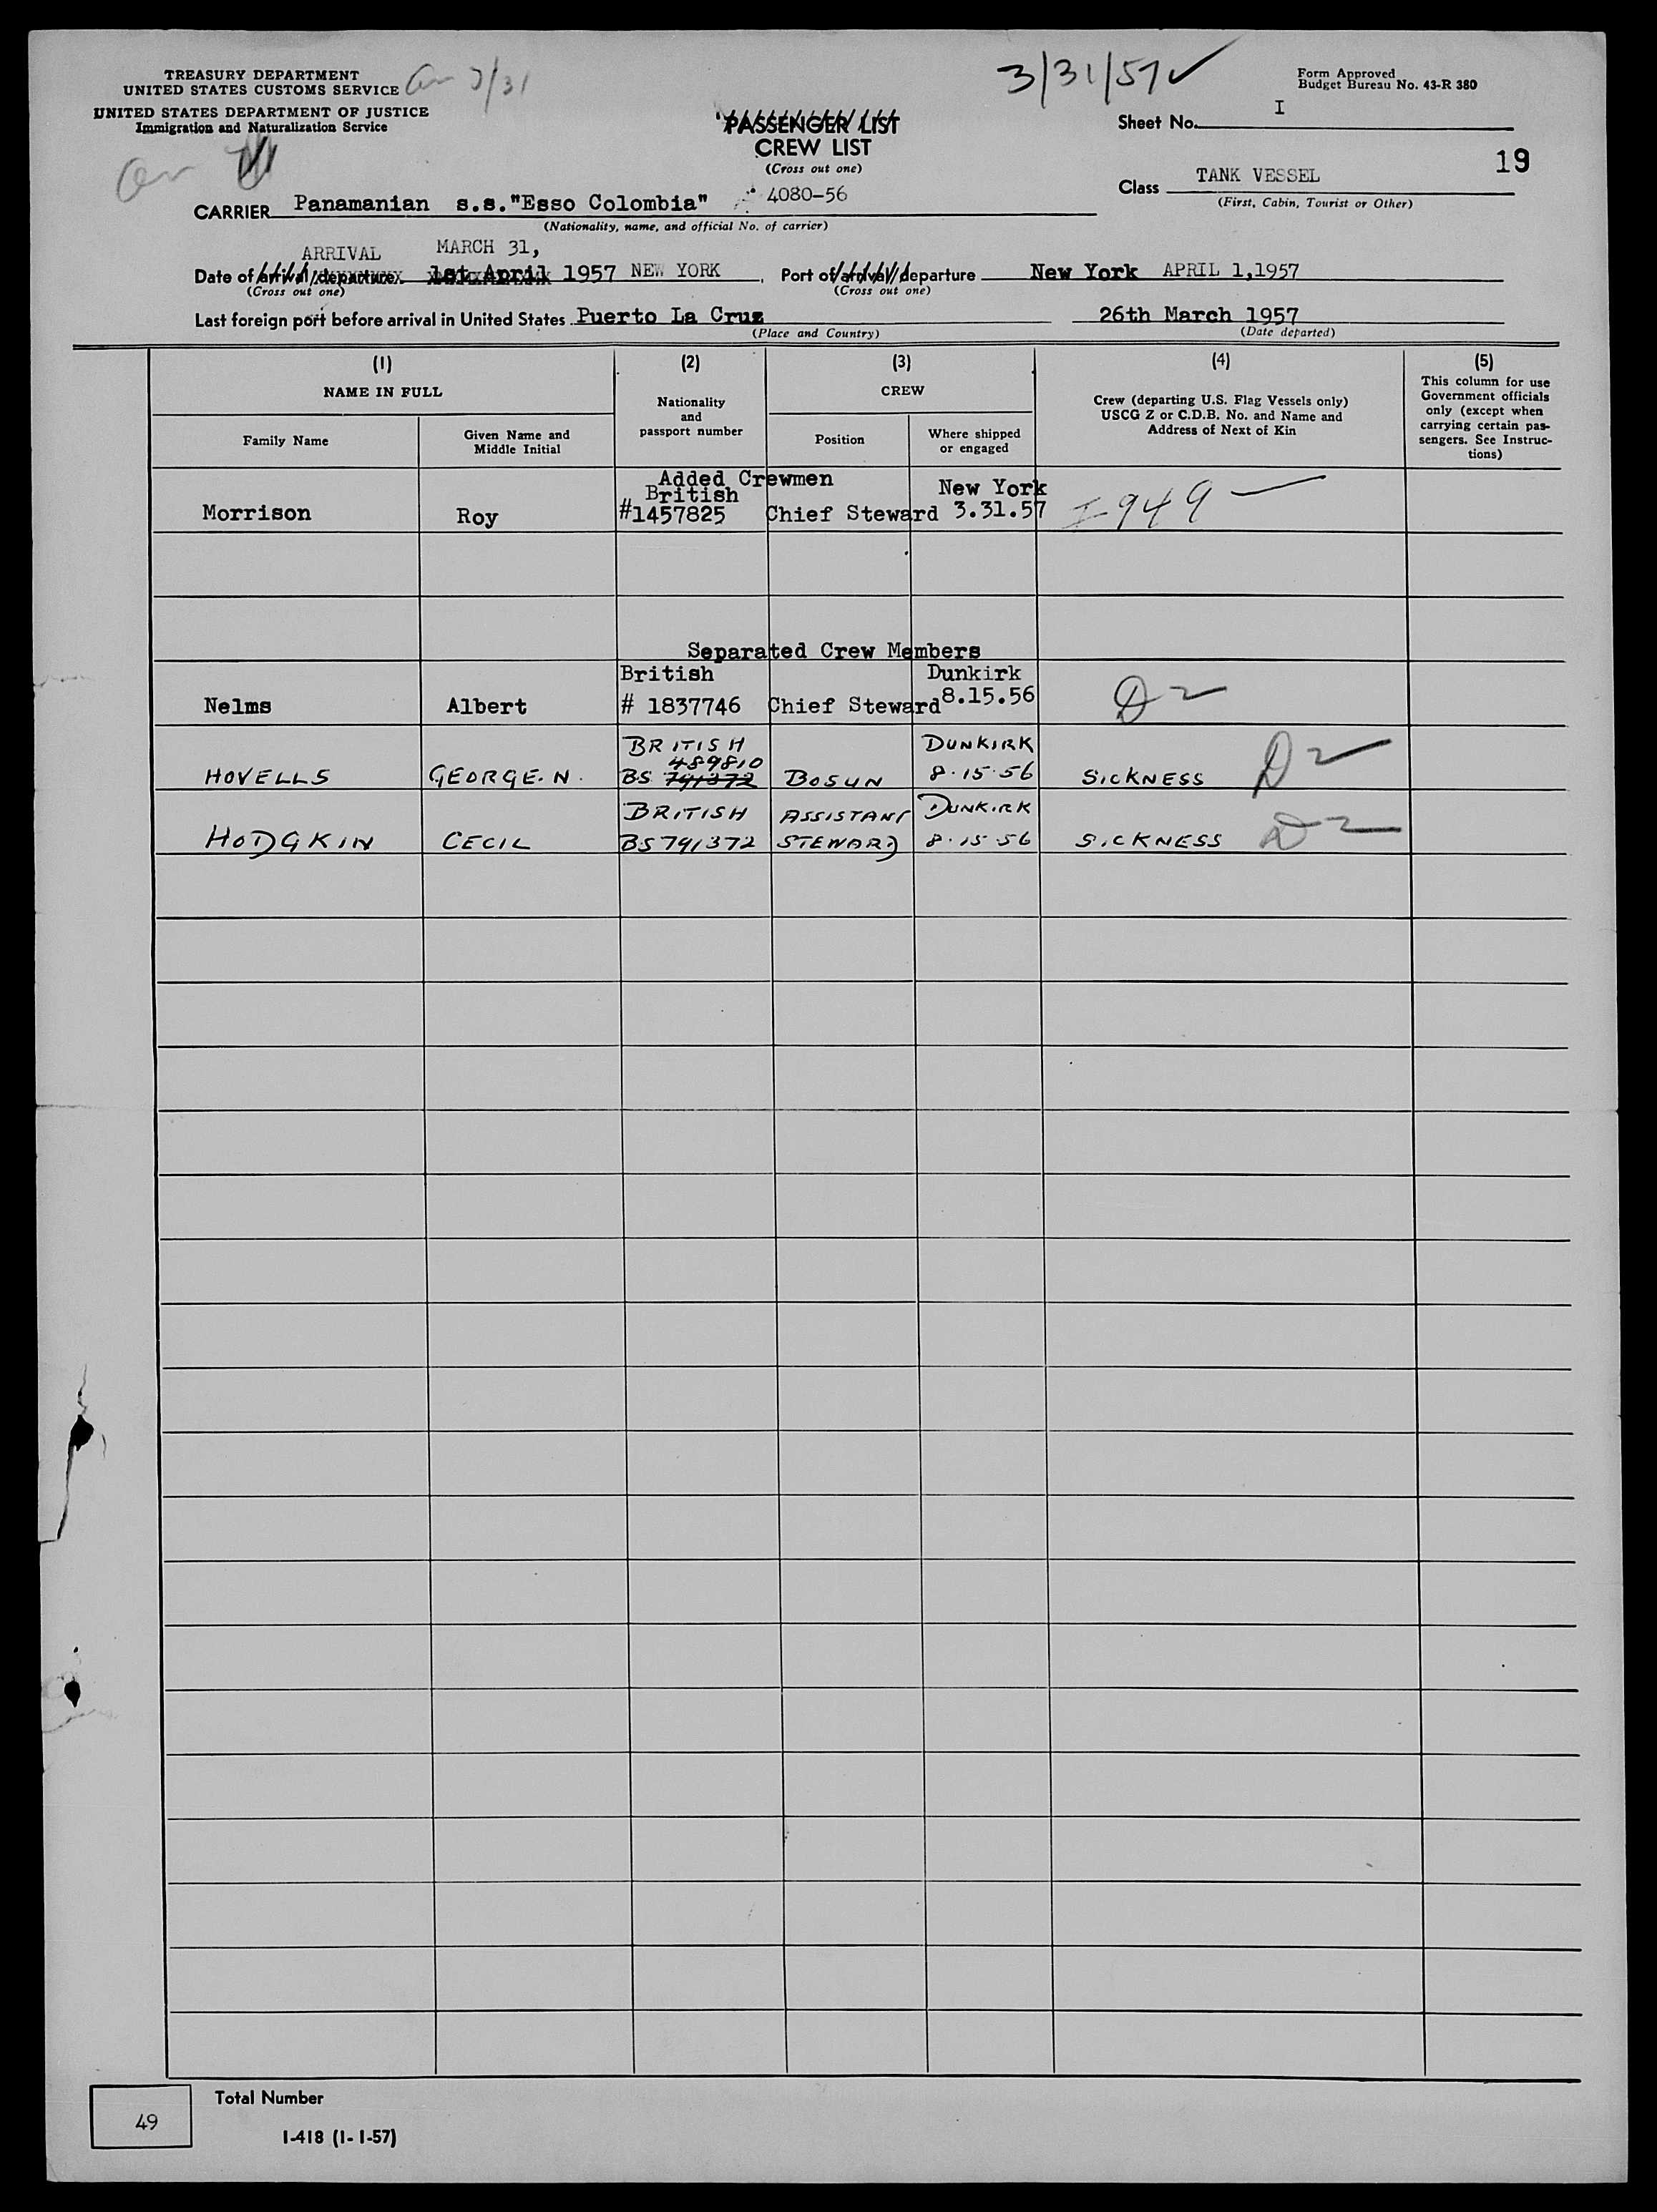 TREASURY DEPARTMENT
UNITED STATES CUSTOMS SERVICE
UNITED STATES DEPARTMENT OF JUSTICE
Immigration and Naturalization Service
7/31
3/31/57
Form Approved
Budget Bureau No. 43-R 380
PASSENGER LIST
CREW LIST
(Cross out one)
Sheet No. I
19
Class TANK VESSEL
(First, Cabin, Tourist or Other)
CARRIER Panamanian s.s."Esso Colombia" 4080-56
(Nationality, name, and official No. of carrier)
ARRIVAL MARCH 31,
Date of arrival/departure 1st April 1957 NEW YORK, Port of arrival/departure New York APRIL 1,1957
(Cross out one) (Cross out one)
Last foreign port before arrival in United States Puerto La Cruz 26th March 1957
(Place and Country) (Date departed)
(1) (2) (3) (4) (5)
NAME IN FULL
Family Name
Given Name and
Middle Initial
Nationality
and
passport number
CREW
Position
Where shipped
or engaged
Crew (departing U.S. Flag Vessels only)
USCG Z or C.D.B. No. and Name and
Address of Next of Kin
This column for use
Government officials
only (except when
carrying certain pas-
sengers. See Instruc-
tions)
Added Crewmen
British New York
Morrison Roy #1457825 Chief Steward 3.31.57 I-949
Separated Crew Members
British Dunkirk
Nelms Albert # 1837746 Chief Steward 8.15.56 D2
BRITISH DUNKIRK
489810
HOVELLS GEORGE. N. BS 791372 BOSUN 8.15.56 SICKNESS D2
BRITISH ASSISTANT DUNKIRK
HODGKIN CECIL BS 791372 STEWARD 8.15.56 SICKNESS D2
Total Number
49
I-418 (1-1-57)